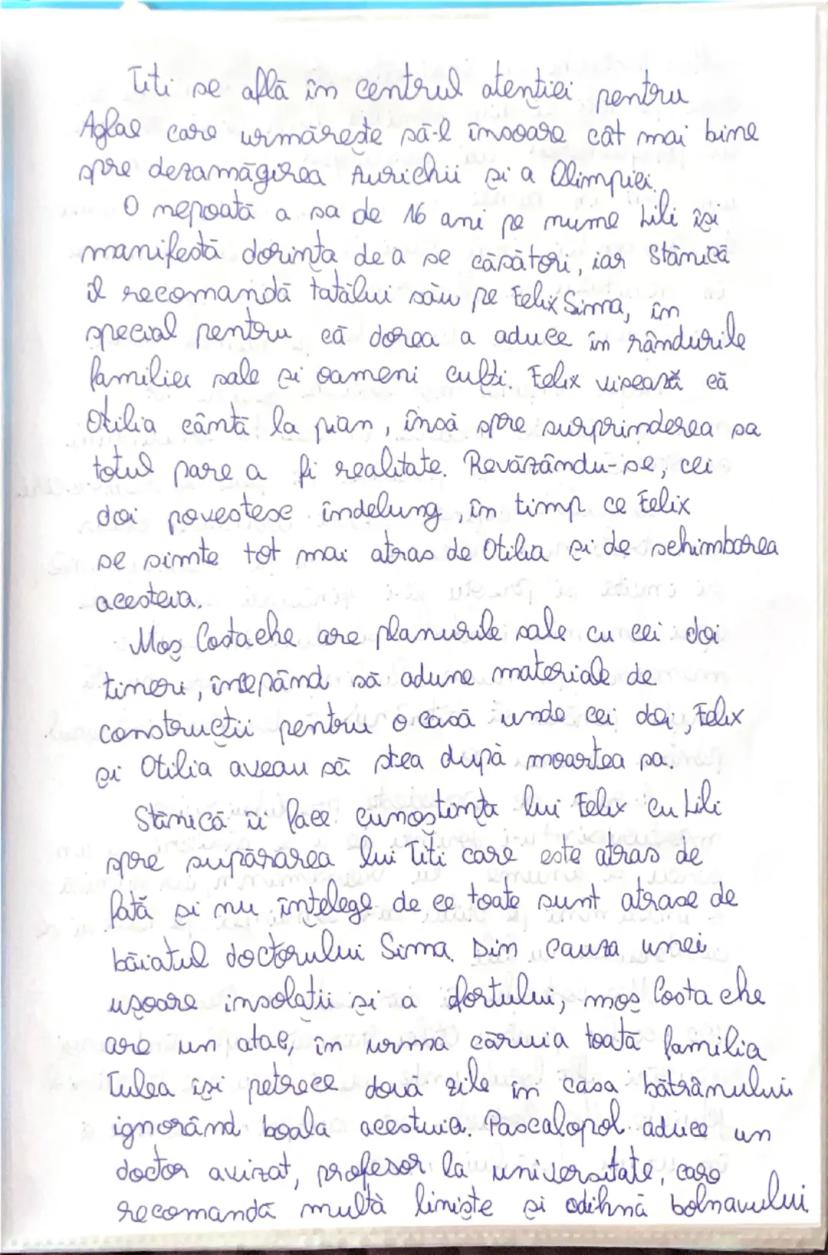 Titi se află în centrul atenției pentru
Aglae care urmărește să-l însoare cât mai bine
spre dezamăgirea Aurichii și a Olimpiei.
O nepoată a sa de 16 ani pe nume Lili își
manifestă dorința de a se căsători, iar Stănică
îl recomandă tatălui său pe Felix Sima, în
special pentru că dorea a aduce în rândurile
familiei sale și oameni culți. Felix visează că
Otilia cântă la pian, însă spre surprinderea sa
totul pare a fi realitate. Revăzându-se, cei
doi povestesc îndelung, în timp ce Felix
se simte tot mai atras de Otilia și de schimbarea
acesteia.
Moș Costache are planurile sale cu cei doi
tineri, începând să adune materiale de
construcții pentru o casă unde cei doi, Felix
și Otilia aveau să stea după moartea sa.
Stănică îi face cunoștința lui Felix cu Lili
spre supărarea lui Titi care este atras de
fată și nu înțelege de ce toate sunt atrase de
băiatul doctorului Sima. Din cauza unei
ușoare insolații și a efortului, moș Costache
are un atac, în urma căruia toată familia
Tulea își petrece două zile în casa bătrânului
ignorând boala acestuia. Pascalopol aduce un
doctor avizat, profesor la universitate, care
recomandă multă liniște și odihnă bolnavului